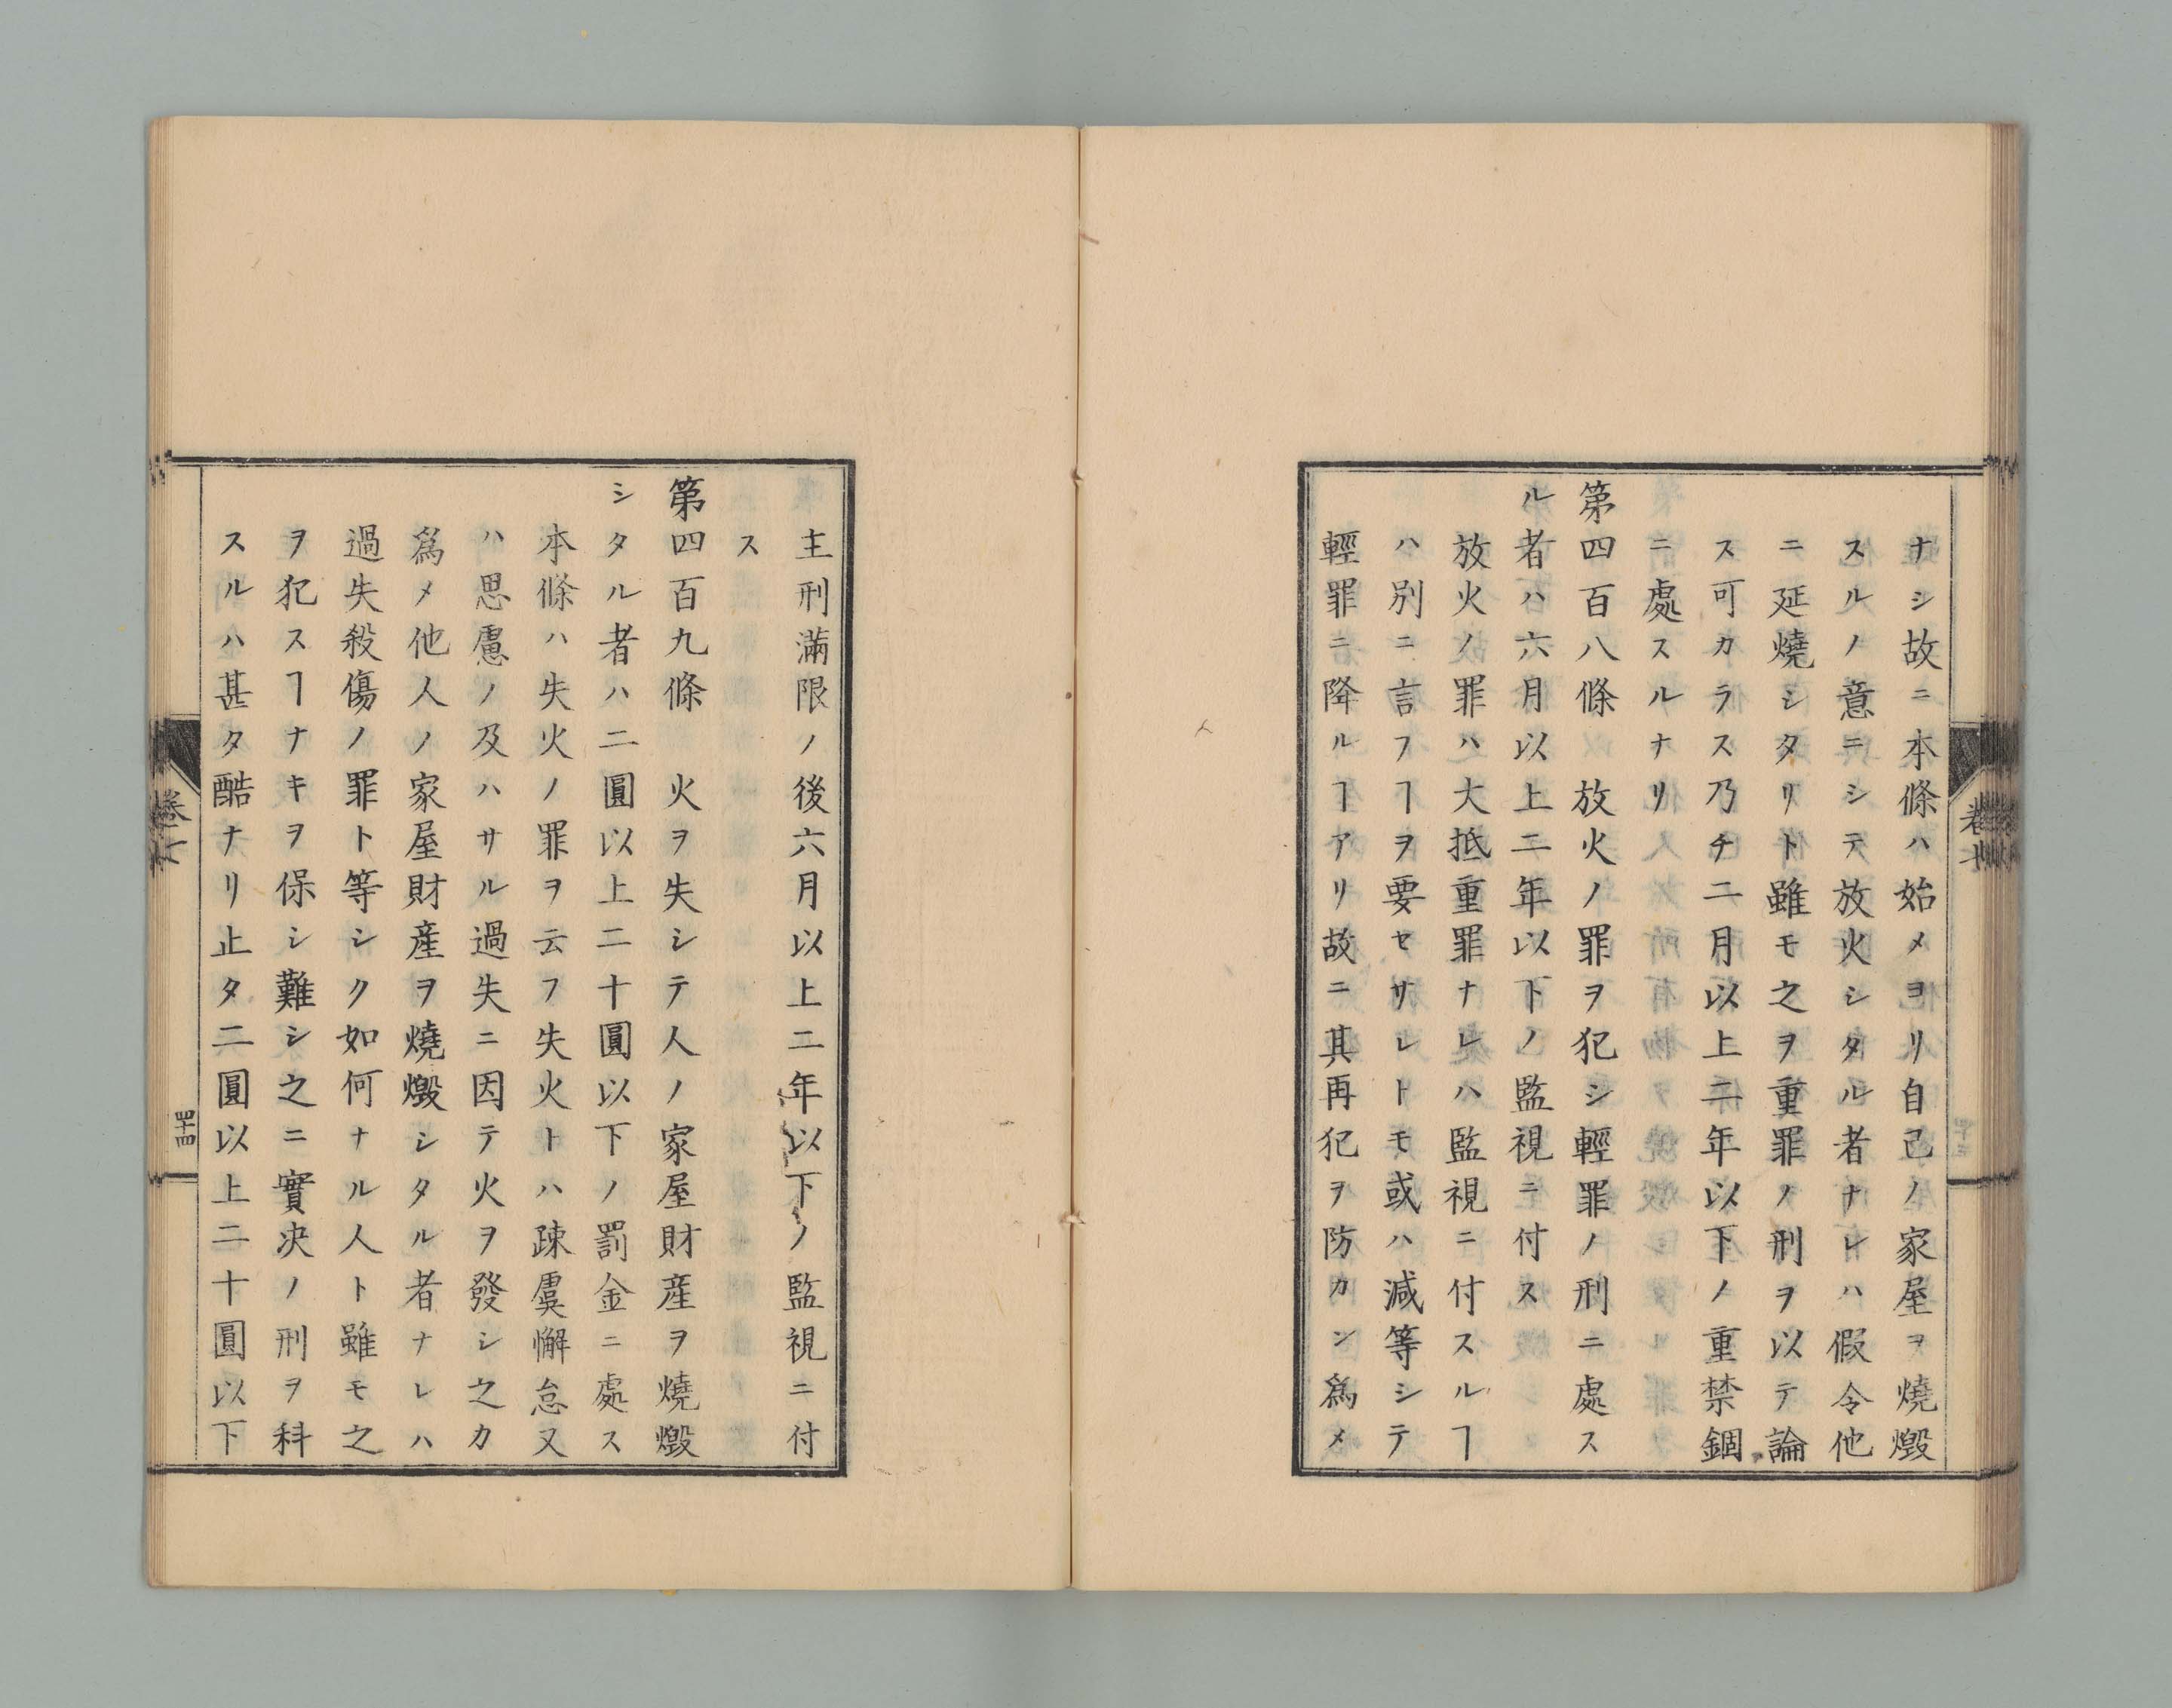 ナシ故ニ本條ハ始メヨリ自己ノ家屋ヲ燒燬
スルノ意ニシテ放火シタル者ナレハ假令他
ニ延燒シタリト雖モ之ヲ重罪ノ刑ヲ以テ論
ス可カラス乃チ二月以上二年以下ノ重禁錮
ニ處スルナリ
第四百八條　放火ノ罪ヲ犯シ輕罪ノ刑ニ處ス
ル者ハ六月以上二年以下ノ監視ニ付ス
放火ノ罪ハ大抵重罪ナレハ監視ニ付スルヿ
ハ別ニ言フヿヲ要セサレトモ或ハ減等シテ
輕罪ニ降ルヿアリ故ニ其再犯ヲ防カン爲メ
主刑滿限ノ後六月以上二年以下ノ監視ニ付
ス
第四百九條　火ヲ失シテ人ノ家屋財産ヲ燒燬
シタル者ハ二圓以上二十圓以下ノ罰金ニ處ス
本條ハ失火ノ罪ヲ云フ失火トハ疎虞懈怠又
ハ思慮ノ及ハサル過失ニ因テ火ヲ發シ之カ
爲メ他人ノ家屋財産ヲ燒燬シタル者ナレハ
過失殺傷ノ罪ト等シク如何ナル人ト雖モ之
ヲ犯スヿナキヲ保シ難シ之ニ實決ノ刑ヲ科
スルハ甚タ酷ナリ止タ二圓以上二十圓以下
四十四